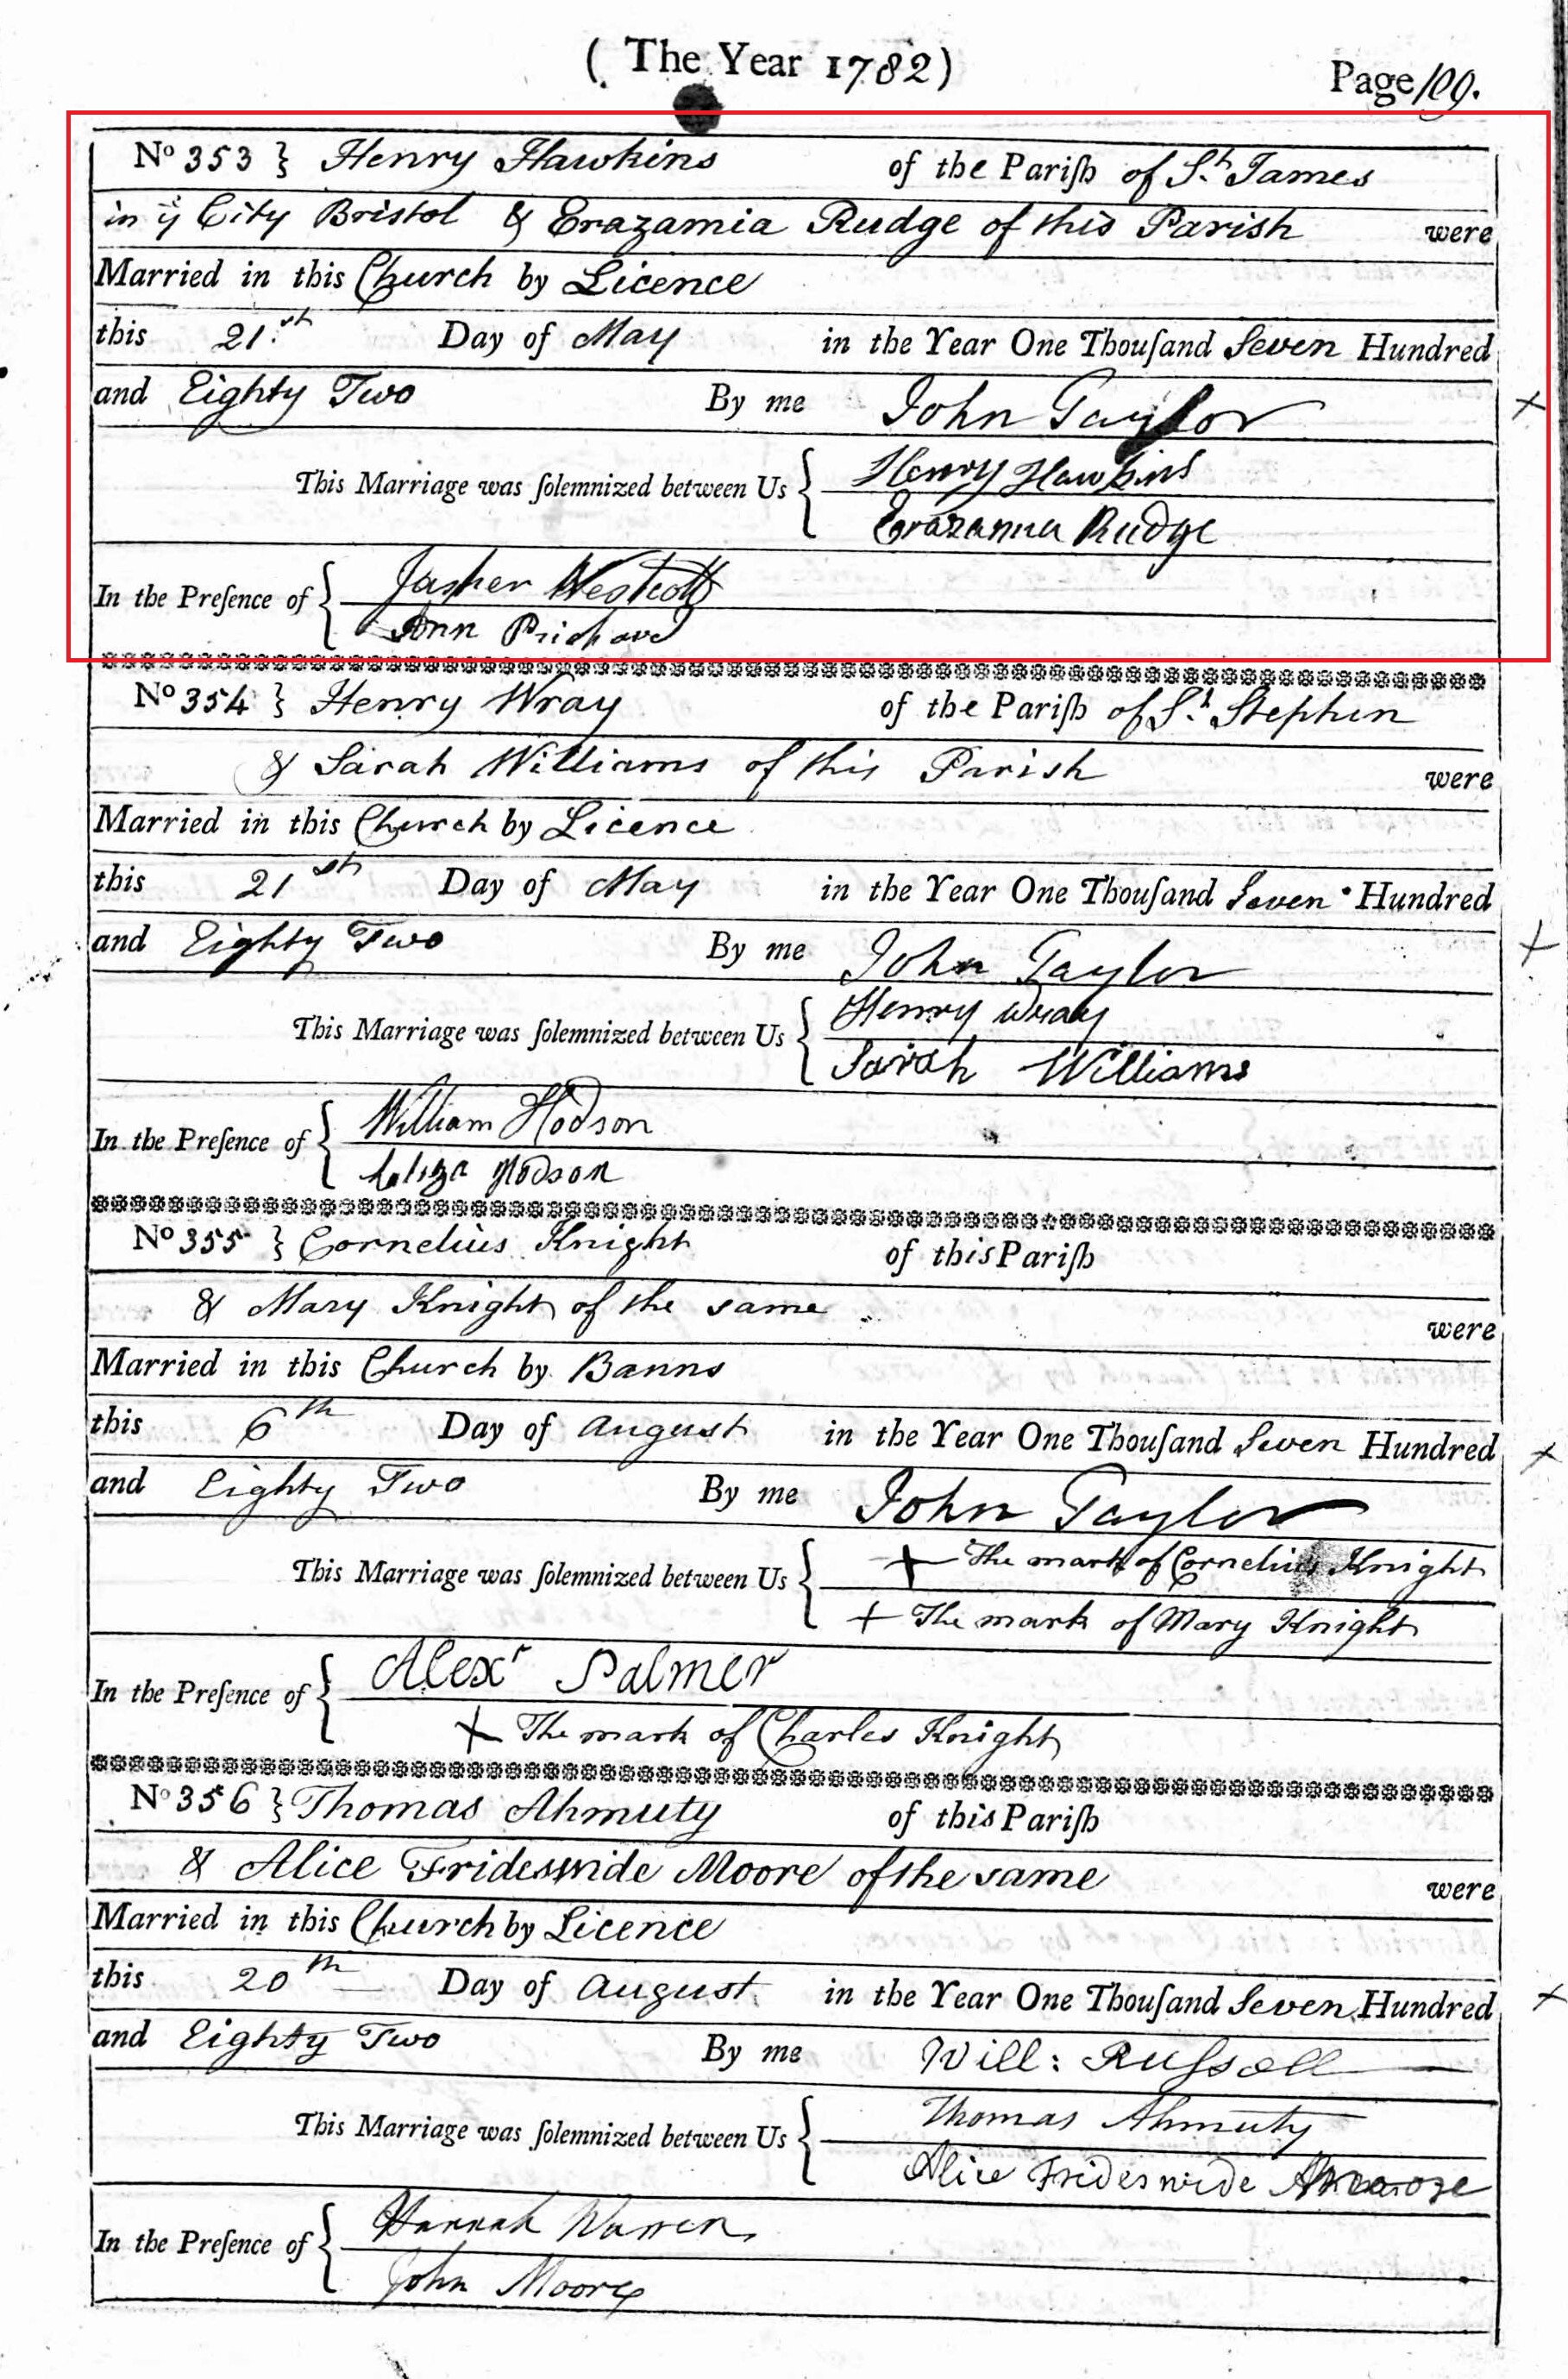 ( The Year 1782)
Page 109.
No 353 } Henry Hawkins of the Pariſh of St. James
in ye City Bristol & Erazamia Rudge of this Parish were
Married in this Church by Licence
this 21.st Day of May in the Year One Thouſand Seven Hundred
and Eighty Two By me John Taylor
This Marriage was ſolemnized between Us { Henry Hawkins
Erazamia Rudge
In the Preſence of { Jasper Westcott
Ann Prichard
No 354 } Henry Wray of the Pariſh of St. Stephen
& Sarah Williams of this Parish were
Married in this Church by Licence
this 21st Day of May in the Year One Thouſand Seven Hundred
and Eighty Two By me John Taylor
This Marriage was ſolemnized between Us { Henry Wray
Sarah Williams
In the Preſence of { William Hodson
Hodson
No 355 } Cornelius Knight of this Pariſh
& Mary Knight of the same were
Married in this Church by Banns
this 6th Day of August in the Year One Thouſand Seven Hundred
and Eighty Two By me John Taylor
This Marriage was ſolemnized between Us { + The mark of Cornelius Knight
+ The mark of Mary Knight
In the Preſence of { Alexr Palmer
+ The mark of Charles Knight
No 356 } Thomas Ahmuty of this Pariſh
& Alice Frideswide Moore of the same were
Married in this Church by Licence
this 20th Day of August in the Year One Thouſand Seven Hundred
and Eighty Two By me Will: Ruſsell
This Marriage was ſolemnized between Us { Thomas Ahmuty
Alice Frideswide
In the Preſence of { Hannah Warren
John Moore